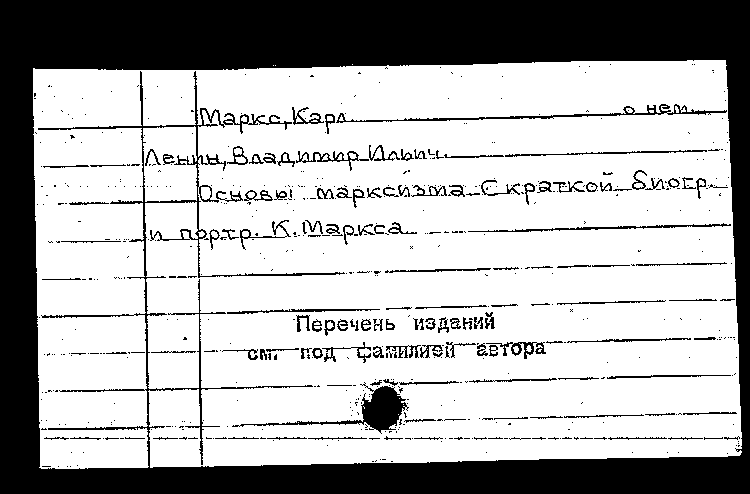 Маркс, Карл о нем.
Ленин, Владимир Ильич.
Основы марксизма С краткой биогр.
и портр. К. Маркса
Перечень изданий
см. под фамилией автора